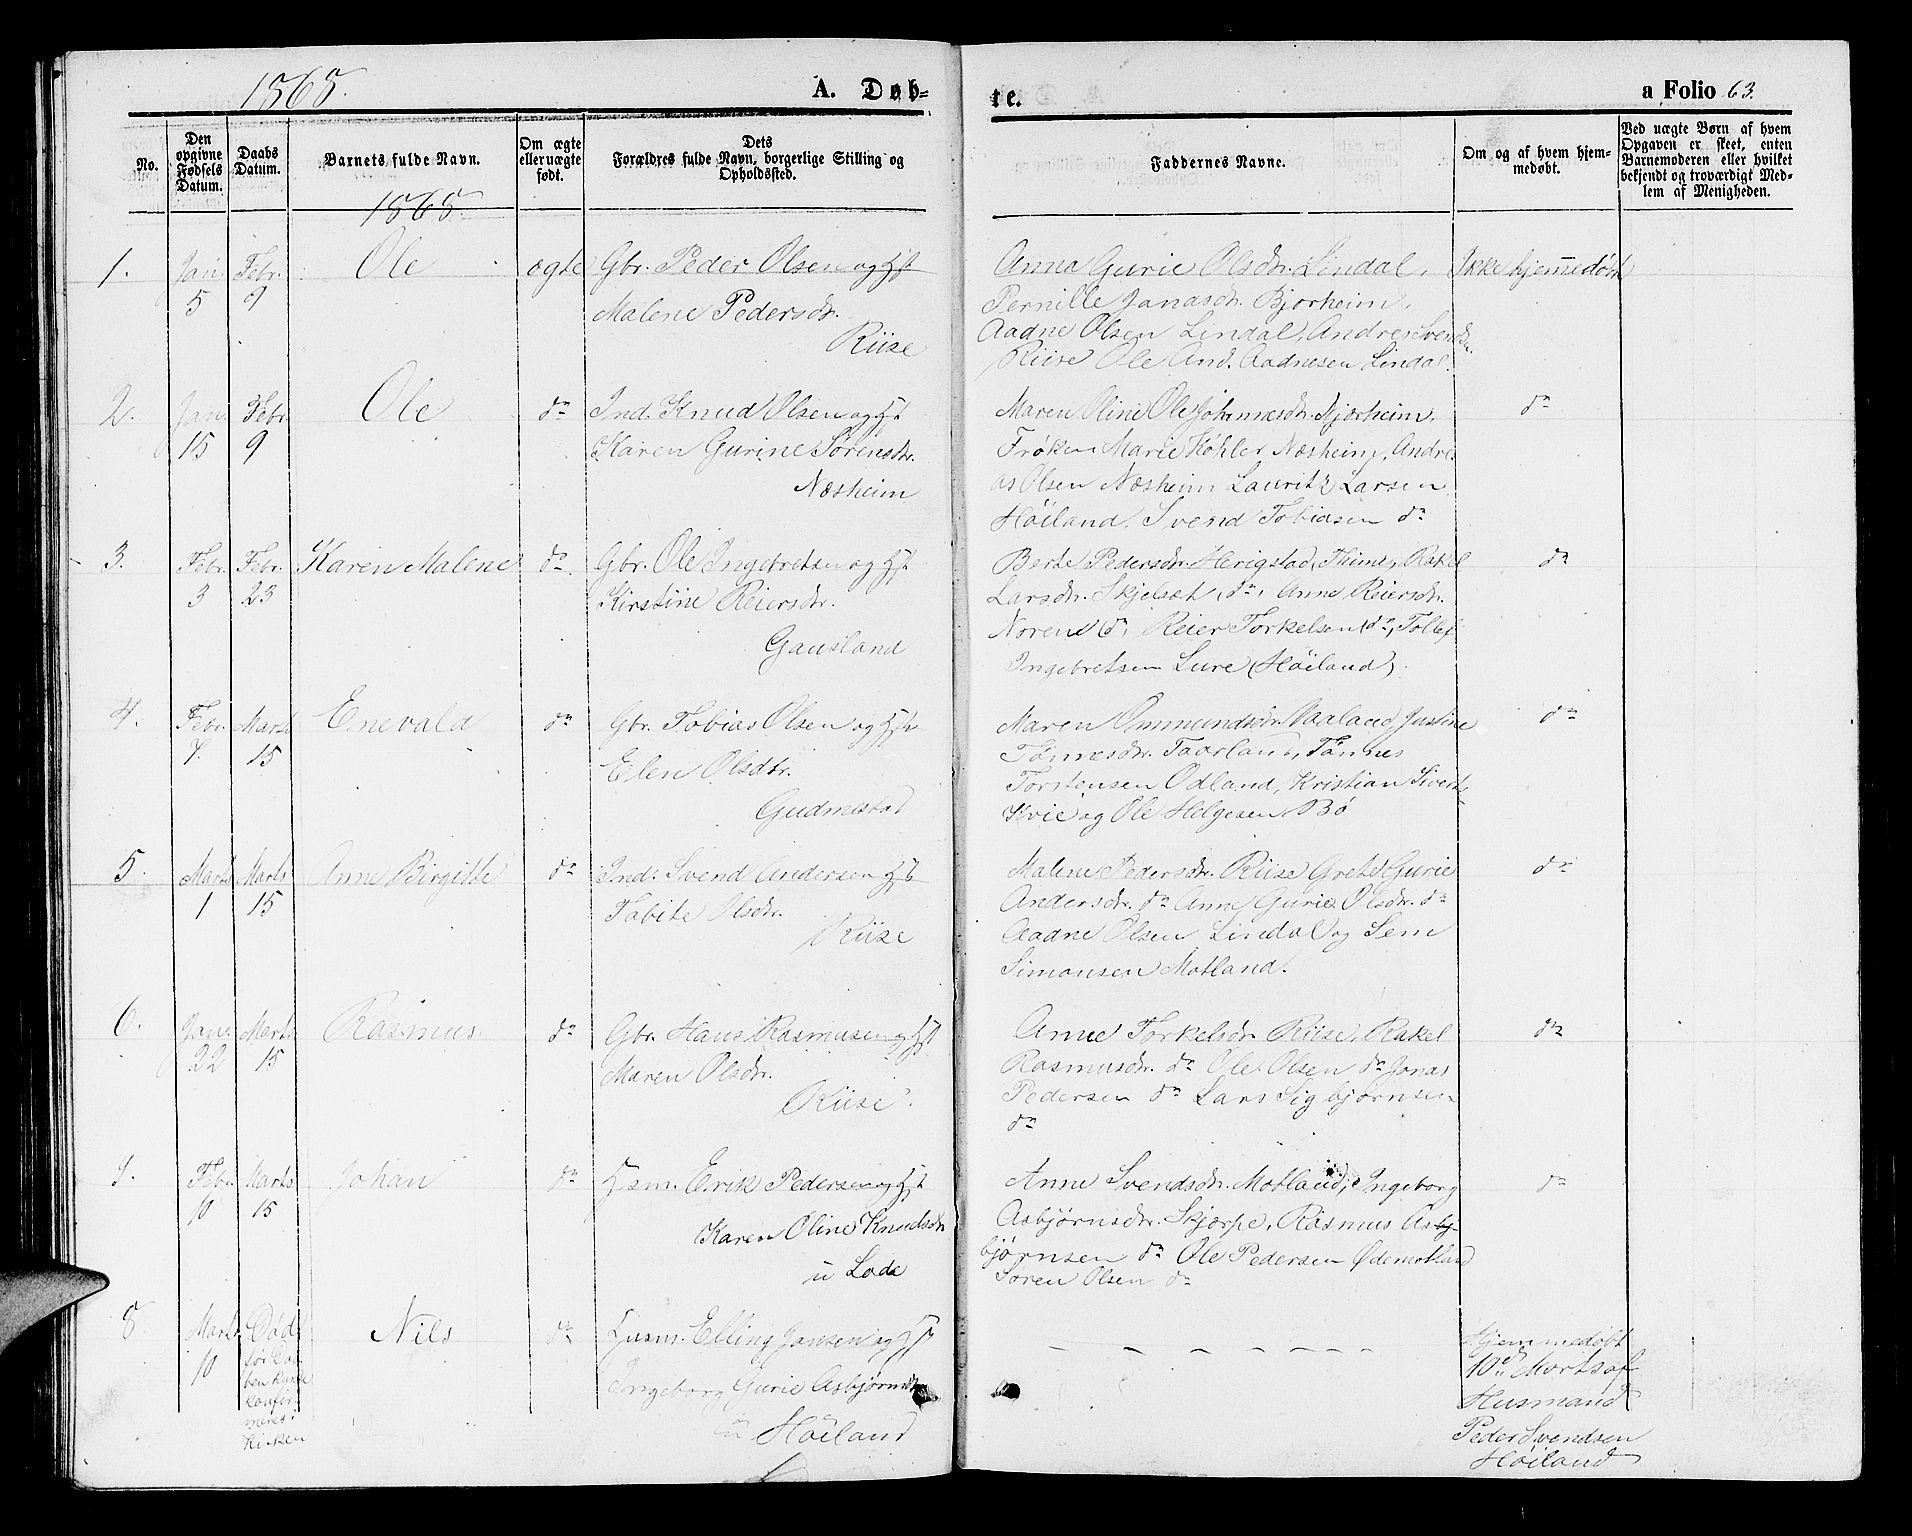 1865.
A. Døb-
te.
a Folio 63.
No.
Den opgivne Fødsels Datum.
Daabs Datum.
Barnets fulde Navn.
Om ægte eller uægte født.
Dets Forældres fulde Navn, borgerlige Stilling og Opholdssted.
Faddernes Navne.
Om og af hvem hjem- medøbt.
Ved uægte Børn af hvem Opgaven er skeet, enten Barnemoderen eller hvilket bekjendt og troværdigt Med- lem af Menigheden.
1865
1. Jan. Febr. Ole ægte Gbr. Peder Olsen og Hst
5 9 Malene Pedersdr.
Riise
Anna Gurie Olsdr. Lindal, Ikke hjemmedøbt
Pernille Janasdr. Bjorheim,
Aadne Olsen Lindal, Andreas Svends
Riise Ole And. Aadnesen Lindal.
2. Jan. Febr. Ole do Ind. Knud Olsen og Hst
15 9 Karen Gurine Sørensdr.
Næsheim
Maren Oline Ole Johannesdr. Njærheim, do
Frøken Marie Køhler Næsheim, Andre-
as Olsen Næsheim Lauritz Larsen
Høiland, Svend Tobiasen do
3. Febr. Febr. Karen Malene do Gbr. Ole Ingebretsen og Hst
3 23 Kirstine Reiersdr.
Gausland
Berte Pedersdr. Herigstad, Thime, Rakel do
Larsdr. Skjelsæt, do, Anne Reiersdr.
Noren do, Reier Torkelsen do, Tollef
Ingebretsen Lure (Høiland).
4. Febr. Marts Enevald do Gbr. Tobias Olsen og Hst
7. 15 Elen Olsdtr.
Gudmestad
Maren Ommundsdr. Vaaland, Justine do
Tønnesdr. Taarland, Tønnes
Torstensen Odland, Kristian Sivert.
Kvie og Ole Helgesen Bø
5. Marts Marts Anne Birgitte do Ind. Svend Andersen Hst
1 15 Tabite Olsdr.
Riise
Malene Pedersdr. Riise Grete Gurie do
Andersdr. do Anne Gurie Olsdr. do
Aadne Olsen Lindal og Sem
Simonsen Motland.
6. Jan. Marts Rasmus do Gbr. Hans Rasmusen og Hst
22 15 Maren Olsdr.
Riise.
Anne Torkelsdr Riise, Rakel do
Rasmusdr. do Ole Olsen do Jonas
Pedersen do Lars Sigbjørnsen
do
7. Febr. Marts Johan do Hsm. Erik Pedersen og Hst
10 15 Karen Oline Knudsdr
u Lode
Anne Svendsdr. Motland, Ingeborg do
Asbjørnsdr. Skjærpe, Rasmus As-
bjørnsen do Ole Pedersen Ødemotland
Søren Olsen do
8 Marts Død Nils do Husm. Elling Jansen og Hst
10 før Daa-
ben kunde Ingeborg Gurie Asbjørnsdr
konfir-
meres i u Høiland
Kirken
Hjemmedøbt
10de Marts af
Husmand
Peder Svendsen
Høiland